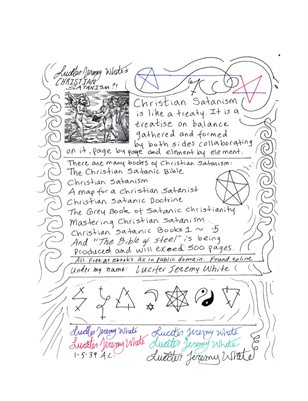 Lucifer Jeremy White's
CHRISTIAN
SATANISM
Christian Satanism
is like a treaty. It is a
treatise on balance
gathered and formed
by both sides collaborating
on it, page by page and element by element.
There are many books of Christian Satanism:
The Christian Satanic Bible
Christian Satanism
A map for a Christian Satanist
Christian Satanic Doctrine
The Grey Book of Satanic Christianity
Mastering Christian Satanism
Christian Satanic Books 1 ~ 5
And "The Bible of Steel" is being
Produced and will exceed 500 pages.
All free as ebooks. As in Public domain. Found online
Under my name: Lucifer Jeremy White!
Lucifer Jeremy White
Lucifer Jeremy White
Lucifer Jeremy White
Lucifer Jeremy White
1-5-39 A.C.
Lucifer Jeremy White